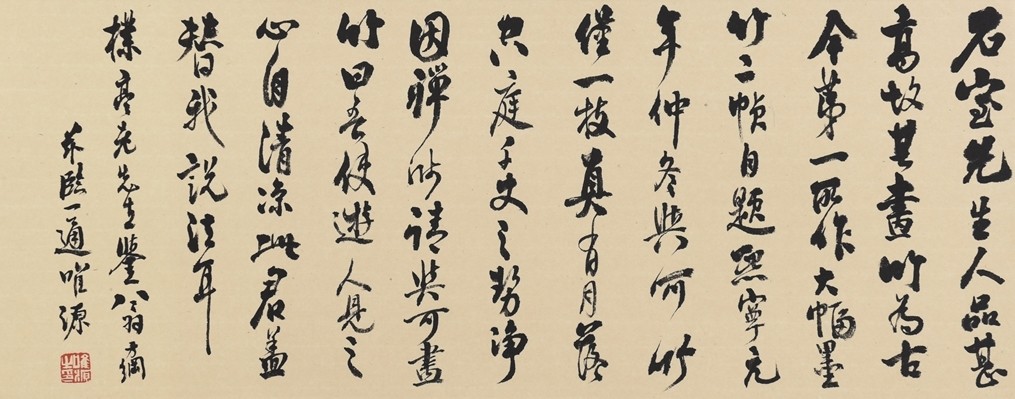 石室先生人品甚
高故其畫竹為古
今第一所作大幅墨
竹二幀自題熙寧元
年仲冬與可竹
僅一枝真有月落
空庭千丈之勢淨
因禪師請與可畫
竹曰吾使遊人見之
心自清涼此君蓋
替我說法耳
樸亭老先生鑒翁方綱
并臨一通唯源